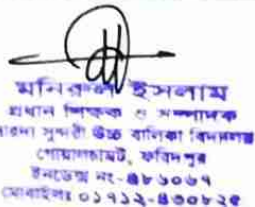 মনিরুল ইসলাম
প্রধান শিক্ষক ও সম্পাদক
সারদা সুন্দরী উচ্চ বালিকা বিদ্যালয়
গোয়ালচামট, ফরিদপুর
ইনডেক্স নং-৪৮১০৬৭
মোবাইলঃ ০১৭১২-৪৩০৮২৫